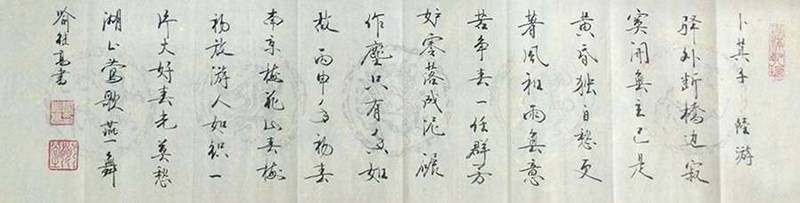 卜算子 陸游
驿外断橋边寂
寞開無主已是
黄昏独自愁更
著風和雨無意
苦争春一任群芳
妒零落成泥碾
作塵只有香如
故 丙申年初春
南京梅花山春梅
初放游人如织一
片大好春光莫愁
湖上莺歌燕舞
喻继高書